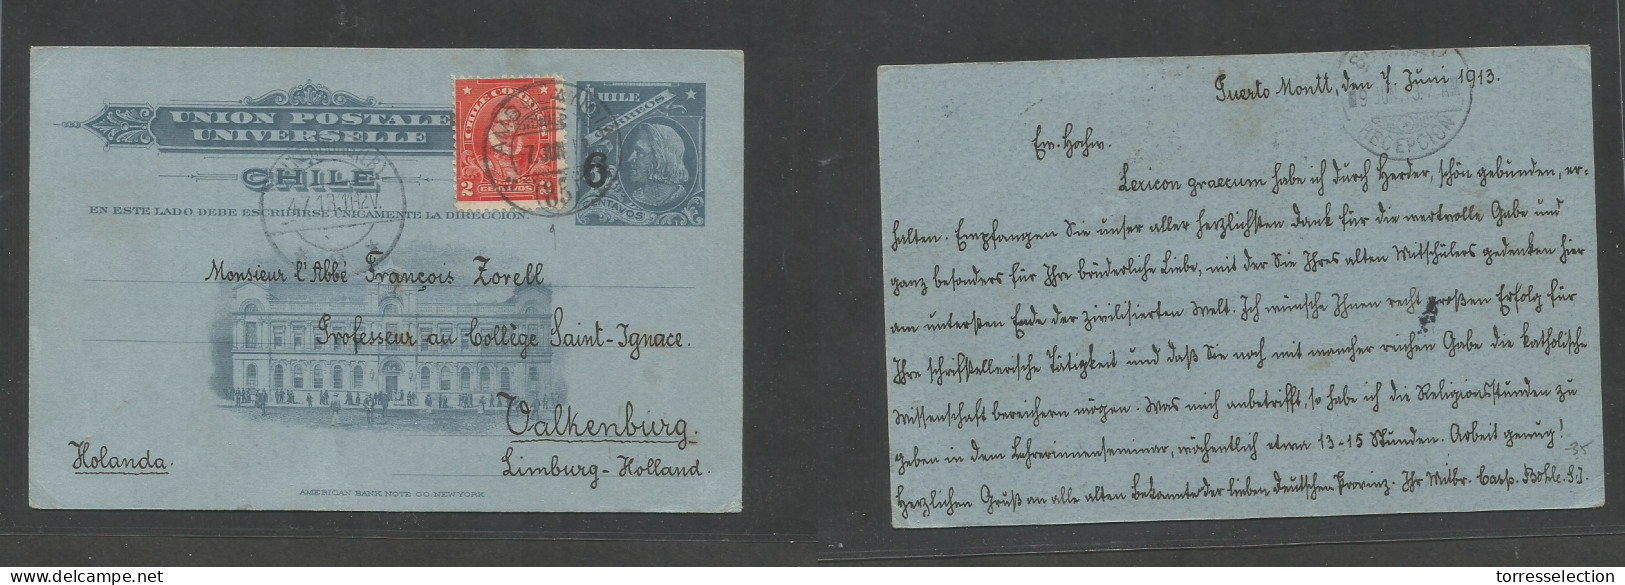 UNION POSTALE
UNIVERSELLE
CHILE
EN ESTE LADO DEBE ESCRIBIRSE ÚNICAMENTE LA DIRECCION.
CHILE CORREOS
2 CENTAVOS 2
CHILE
CORREOS
6
CENTAVOS
4.7.13.
Monsieur l'Abbé François Zorell
Professeur au Collège Saint-Ignace.
Valkenburg.
Holanda.
Limburg-Holland.
AMERICAN BANK NOTE CO. NEW YORK
RECEPCION
Puerto Montt, den 7. Juni 1913.
Ew. Hochw.
Lexicon graecum habe ich durch Herder, schön gebunden, er-
halten. Empfangen Sie unser aller herzlichsten Dank für die wertvolle Gabe und
ganz besonders für Ihre brüderliche Liebe, mit der Sie Ihres alten Mitschülers gedenken hier
am untersten Ende der zivilisierten Welt. Ich wünsche Ihnen recht großen Erfolg für
Ihre schriftstellerische Tätigkeit und daß Sie noch mit mancher reichen Gabe die katholische
Wissenschaft bereichern mögen. Was mich anbetrifft, so habe ich die Religionsstunden zu
geben in dem Lehrerinnenseminar, wöchentlich etwa 13-15 Stunden. Arbeit genug!
35
Herzlichen Gruß an alle alten Bekannte der lieben deutschen Provinz. Ihr Mitbr. Casp. Bohle. S.J.
torresselection